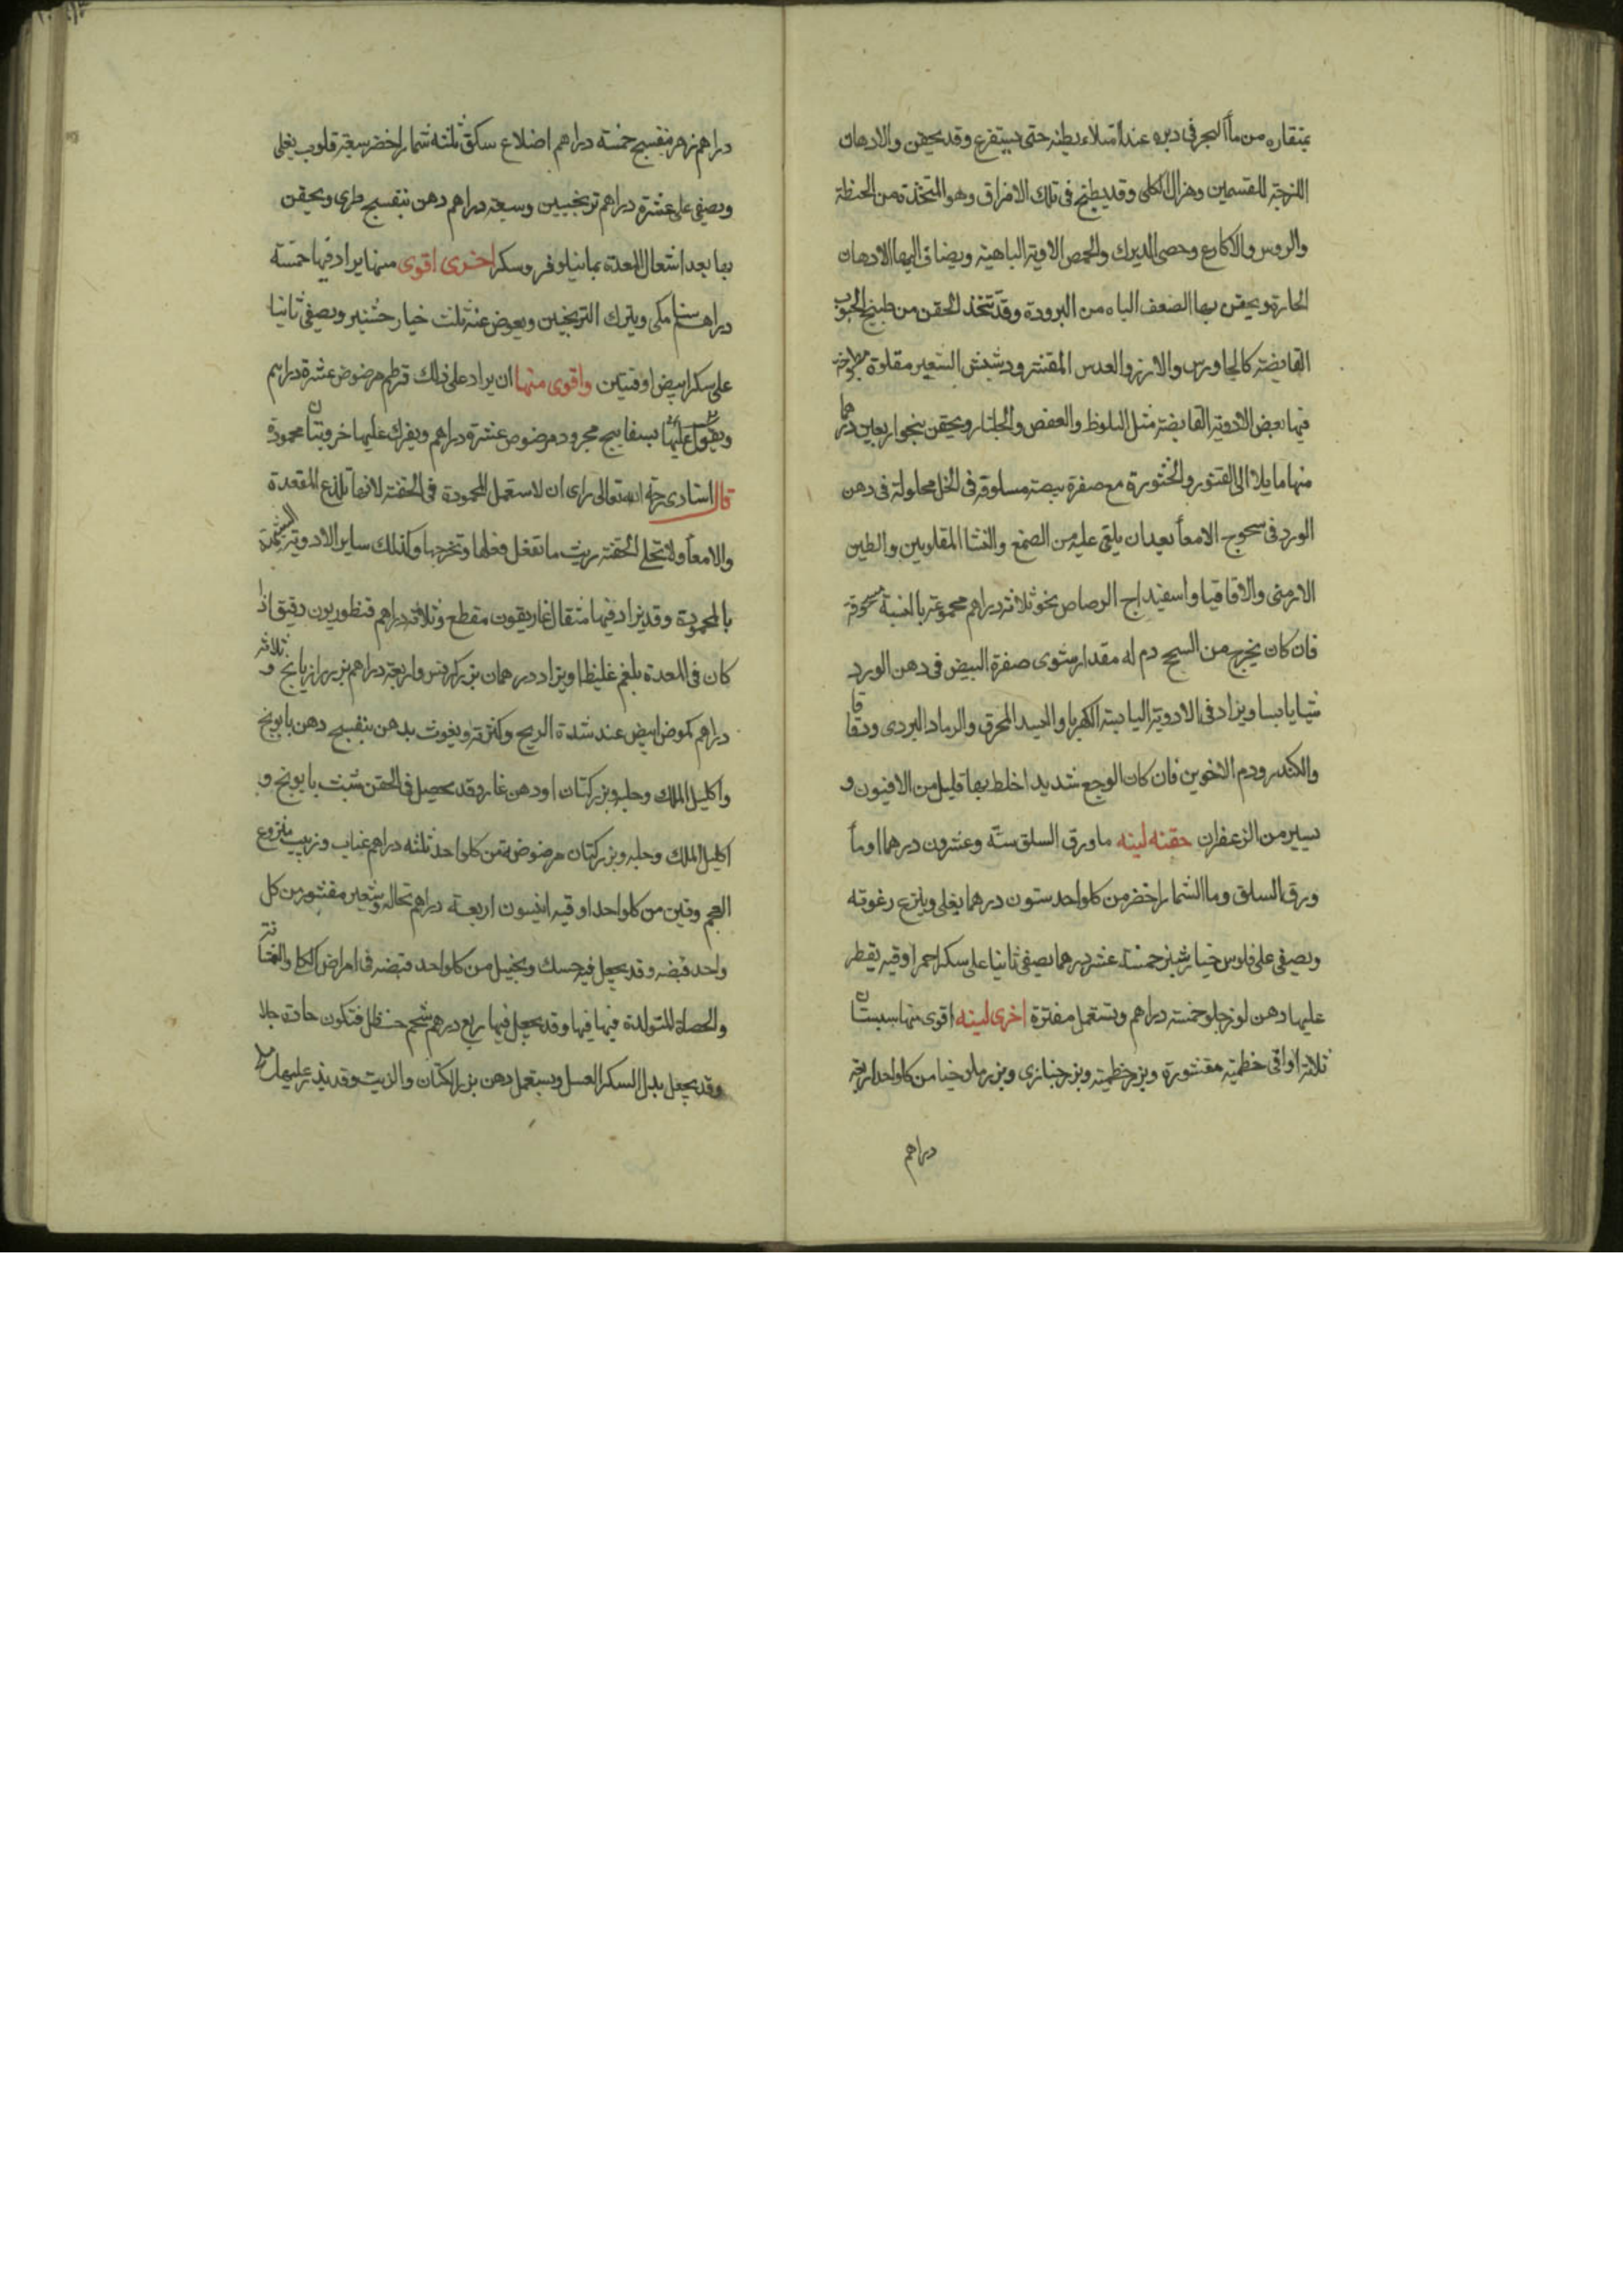 بمنقاره من ماأ البحر فى دبره عند امتلاء بطنه حتى يستفرغ وقد يحقن والادهان
اللزجة للقسمين وهزال الكلى وقد يطبخ فى تلك الامراق وهو المتخذة من الحنطة
والروس والاكارع وحصى الديك والحمص الادوية الباهية ويضاف اليها الادهان
الحارة ويحقن بها الضعف الباه من البرودة وقد تتخذ الحقن من طبيخ الحبوب
القابضة كالجاورس والارز والعدس المقشر ودشيش الشعير مقلوة
فيها بعض الادوية القابضة مثل البلوط والعفص والجلنار ويحقن بنحو اربعين درهما
منها مايلا الى الفتور والخثورة مع صفرة بيضة مسلوقة فى الخل محلولة فى دهن
الورد فى سحوج الامعأ بعد ان يلقى عليه من الصمغ والنشا المقلويين والطين
الارمنى والاقاقيا واسفيداج الرصاص نحو ثلاثة دراهم مجموعة بالنسبة مسحوقة
فان كان يخرج من السحج دم له مقدار مثوى صفرة البيض فى دهن الورد
شيا يابسا ويزاد فى الادوية اليابسة الكهربا و المحرق والرماد البردى ودقاقا
والكندر ودم الاخوين فان كان الوجع شديد اخلط بها قليل من الافيون و
يسير من الزعفران حقنه لينه ما ورق السلق ستة وعشرون درهما اومأ
ورق السلق وما الشمار اخضر من كلواحد ستون درهما يغلى وينزع رغوته
ويصفى على فلوس خيار شنبر خمسة عشر درهما يصفى ثانيا على سكر احمر اوقيه يقطر
عليها دهن لوز حلو خمسه دراهم وتستعمل مفترة اخرى لينه اقوى منها سبستان
ثلاثة اواقى خطمية مقشورة وبزر خطمية وبزر خبازى وبزر من كلواحد اربعة
دراهم
دراهم زهر بنفسج خمسه دراهم اضلاع سلق ثلثه شمار اخضر سبعة قلوب يغلى
ويصفى على عشرة دراهم ترنجبين وسبعة دراهم دهن بنفسج طرى ويحقن
بها بعد اشعال المعدة بما نيلوفر وسكر اخرى اقوى منها يزاد فيها خمسة
دراهم سنا مكى ويترك الترنجبين ويعوض عنه بلت خيار شنبر ويصفى ثانيا
على سكر ابيض اوقيتين واقوى منها ان يزاد على ذلك قرطم مرضوض عشرة دراهم
ويقوا عليها بسفايج مجرود مرضوض عشرة دراهم ويفرك عليها خروبتان محمودة
قال استادى رحمه الله تعالى راى ان لا ستعمل المحمودة فى الحقنة لانها تلذع المقعدة
والامعأ ولا تخلى الحقنة ريث ما تفعل فعلها وتخرجها وكذلك ساير الادوية
بالمحمودة وقد يزاد فيها مثقال غاريقون مقطع وثلاثة دراهم قنطوريون دقيق اذا
كان فى المعدة بلغم غليظا ويزاد درهمان بزر كرفس واربعة دراهم بزر رازيانج و ثلاثة
دراهم كمون ابيض عند شدة الريح وكثرته ويغوث بدهن بنفسج دهن بابونج
واكليل الملك وحلبه وبزر كتان او دهن غار وقد يحصل فى الحقن شبت بابونج و
اكليل الملك وحلبه وبزر كتان مرضوضة من كلواحد ثلثه دراهم عناب وزبيب منزوع
العجم وتين من كلواحد اوقيه انيسون اربعة دراهم نخاله وشعير مقشور من كل
واحد قبضه وقد يجعل فيه حسك ونخيل من كلواحد قبضه فى امراض الكلا والمثانة
والحصاة المتولدة فيها فيها وقد يجعل فيها ربع درهم شحم حنظل فتكون حادة جلا
وقد يجعل بدل السكر العسل ويستعمل دهن بزر الكتان والزيت وقد يذر عليها